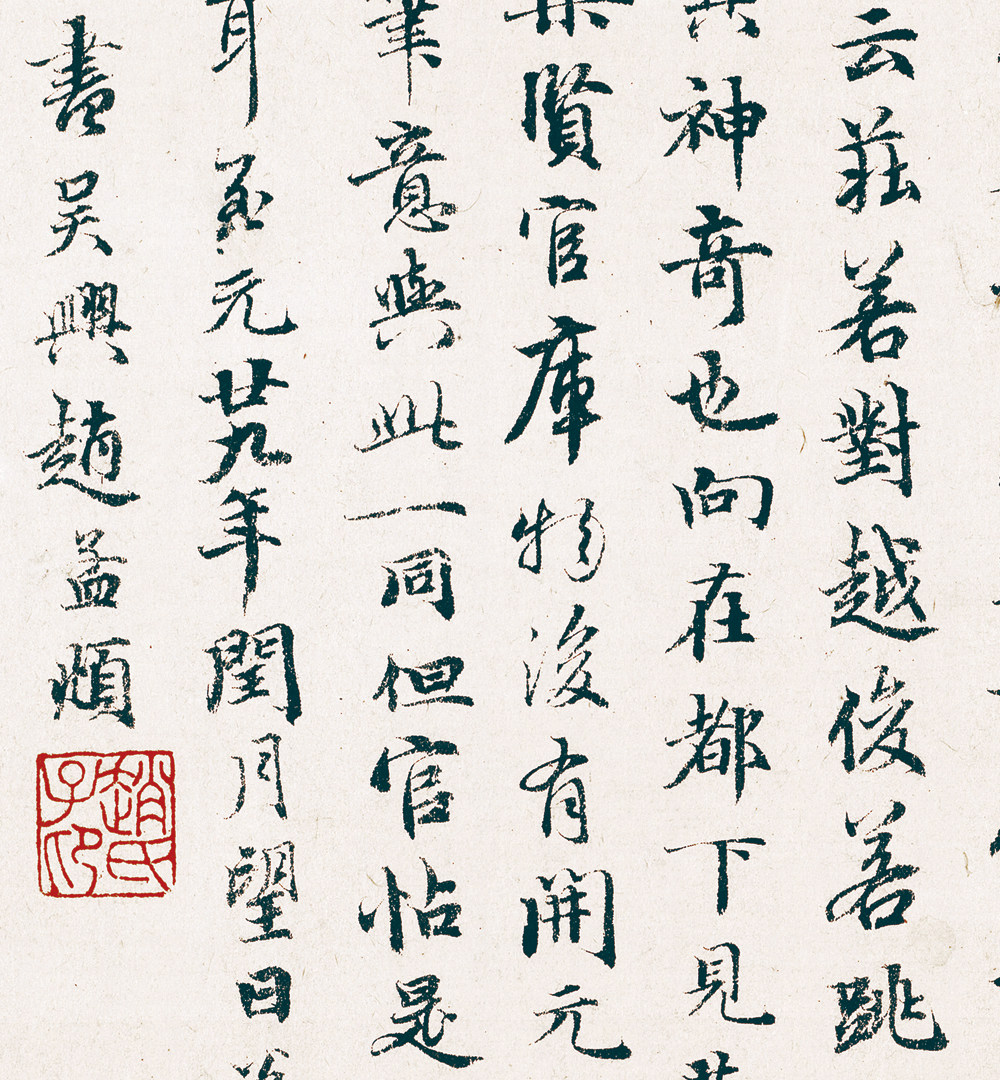 云莊若對越俊若跳
其神奇也向在都下見
集賢官庫物後有開元
筆意與此一同但官帖是
耳至元廿九年閏月望日
書吳興趙孟頫
趙氏子昂